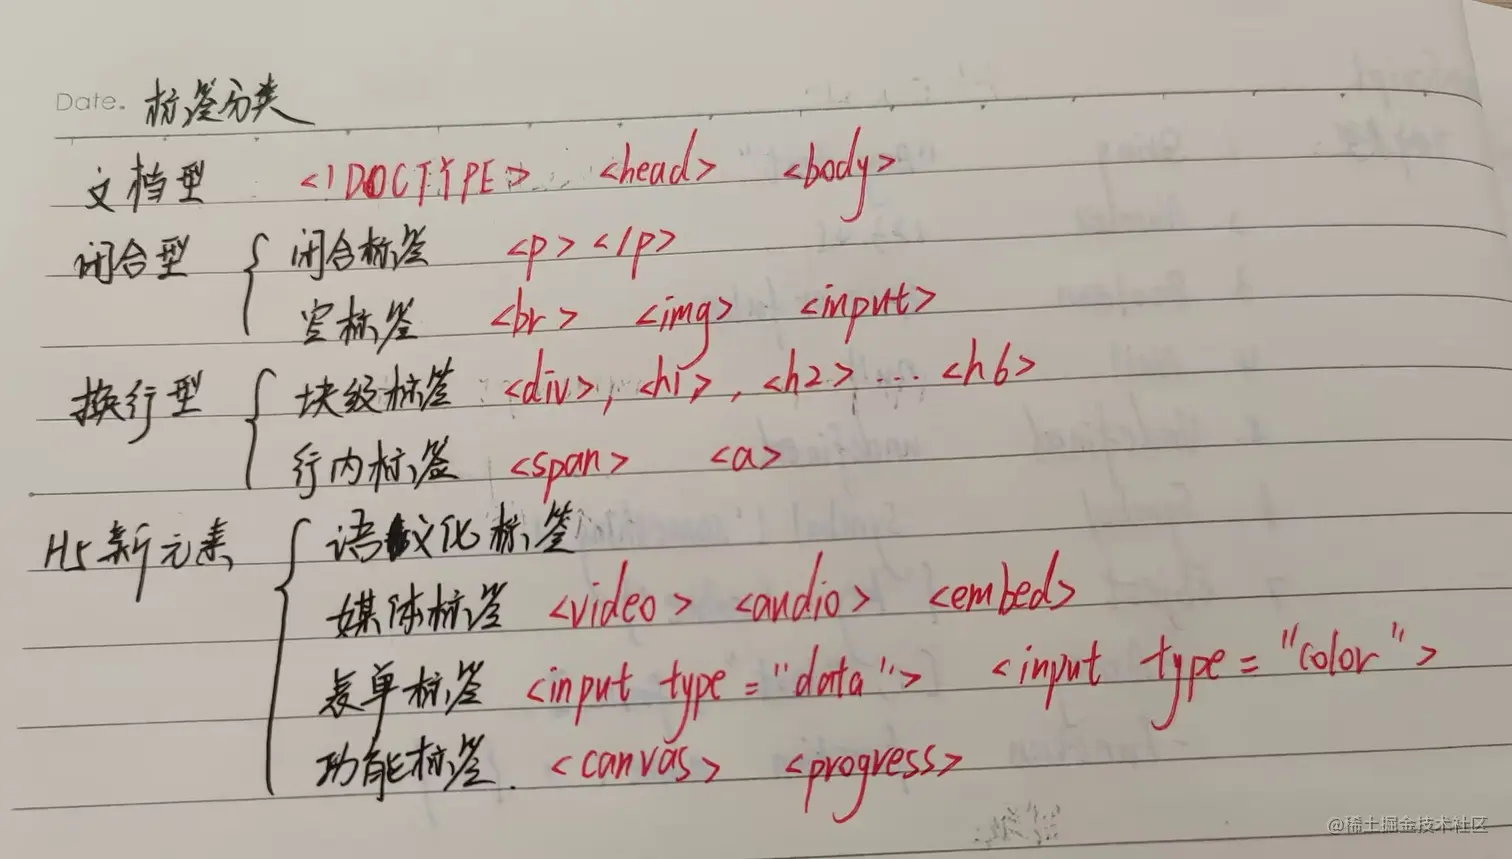 Date. 标签分类
文档型 <!DOCTYPE> <head> <body>
闭合型 { 闭合标签 <p></p>
空标签 <br> <img> <input>
换行型 { 块级标签 <div>, <h1>, <h2>... <h6>
行内标签 <span> <a>
H5新元素 { 语义化标签
媒体标签 <video> <audio> <embed>
表单标签 <input type="data"> <input type="color">
功能标签. <canvas> <progress>
@稀土掘金技术社区